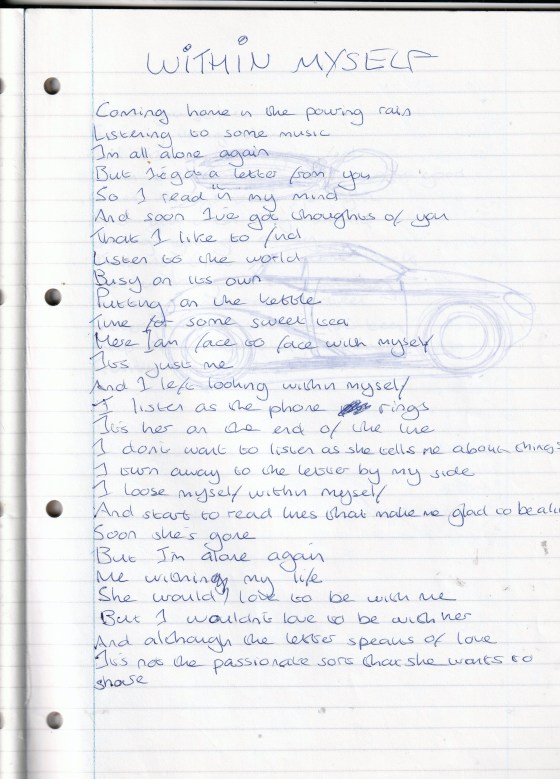 WITHIN MYSELF
Coming home in the pouring rain
Listening to some music
I'm all alone again
But I've got a letter from you
So I read in my mind
And soon I've got thoughts of you
That I like to find
Listen to the world
Busy on its own
Putting on the kettle
Time for some sweet tea
Here I am face to face with myself
It's just me
And I left looking within myself
I listen as the phone rings
It's her on the end of the line
I don't want to listen as she tells me about things
I turn away to the letter by my side
I loose myself within myself
And start to read lines that make me glad to be ali
Soon she's gone
But I'm alone again
Me within my life
She would love to be with me
But I wouldn't love to be with her
And although the letter speaks of love
It's not the passionate sorts that she wants to
share